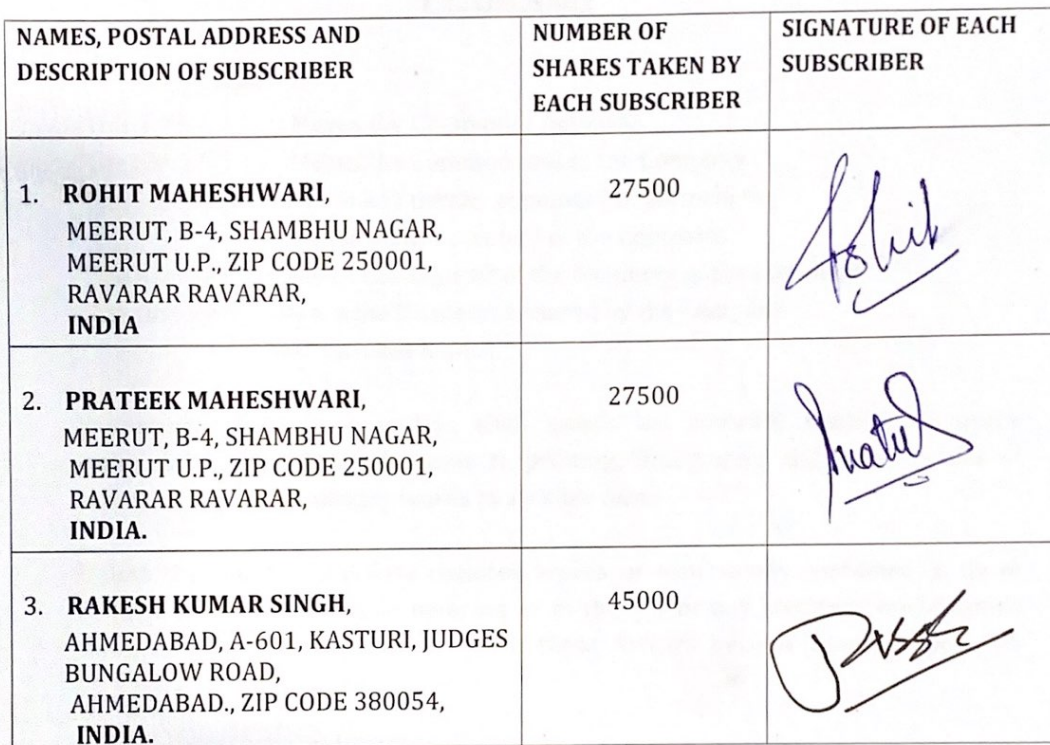 NAMES, POSTAL ADDRESS AND
DESCRIPTION OF SUBSCRIBER
NUMBER OF
SHARES TAKEN BY
EACH SUBSCRIBER
SIGNATURE OF EACH
SUBSCRIBER
1. ROHIT MAHESHWARI,
MEERUT, B-4, SHAMBHU NAGAR,
MEERUT U.P., ZIP CODE 250001,
RAVARAR RAVARAR,
INDIA
27500
2. PRATEEK MAHESHWARI,
MEERUT, B-4, SHAMBHU NAGAR,
MEERUT U.P., ZIP CODE 250001,
RAVARAR RAVARAR,
INDIA.
27500
3. RAKESH KUMAR SINGH,
AHMEDABAD, A-601, KASTURI, JUDGES
BUNGALOW ROAD,
AHMEDABAD., ZIP CODE 380054,
INDIA.
45000